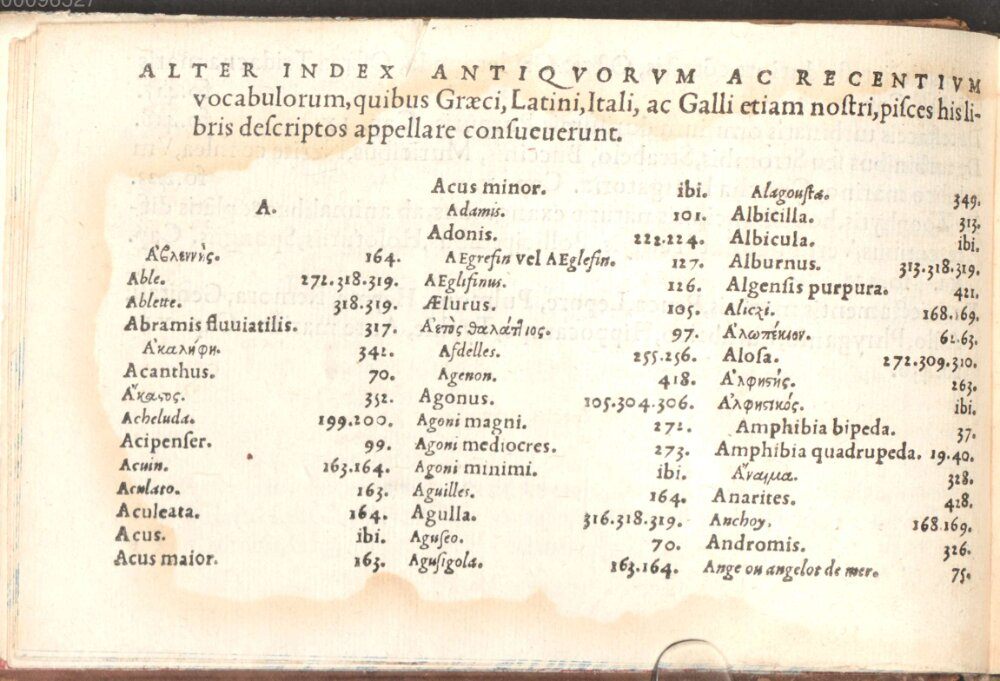 00098527
ALTER INDEX ANTIQVORVM AC RECENTIVM
vocabulorum, quibus Græci, Latini, Itali, ac Galli etiam noſtri, piſces his li-
bris deſcriptos appellare conſueuerunt.
A.
Ἀβλεννής. 164.
Able. 272.318.319.
Ablette. 318.319.
Abramis fluuiatilis. 317.
Ἀκαλήφη. 342.
Acanthus. 70.
352.
Acheluda. 199.200.
Acipenſer. 99.
Acuin. 163.164.
Aculato. 163.
Aculeata. 164.
Acus. ibi.
Acus maior. 163.
Acus minor. ibi.
Adamis. 101.
Adonis. 222.224.
AEgrefin vel AEglefin. 127.
AEglifinus. 126.
AElurus. 105.
Ἀετὸς θαλάττιος. 97.
Aſdelles. 255.256.
Agenon. 418.
Agonus. 105.304.306.
Agoni magni. 272.
Agoni mediocres. 273.
Agoni minimi. ibi.
Aguilles. 164.
Agulla. 316.318.319.
Aguſeo. 70.
Aguſigola. 163.164.
Alagouſta. 349.
Albicilla. 313.
Albicula. ibi.
Alburnus. 313.318.319.
Algenſis purpura. 421.
Aliczi. 168.169.
Ἀλωπέκιον. 62.63.
Aloſa. 272.309.310.
Ἀλφηστής. 263.
Ἀλφηστικός. ibi.
Amphibia bipeda. 37.
Amphibia quadrupeda. 19.40.
Ἄναιμα. 328.
Anarites. 428.
Anchoy. 168.169.
Andromis. 326.
Ange ou angelot de mer. 75.